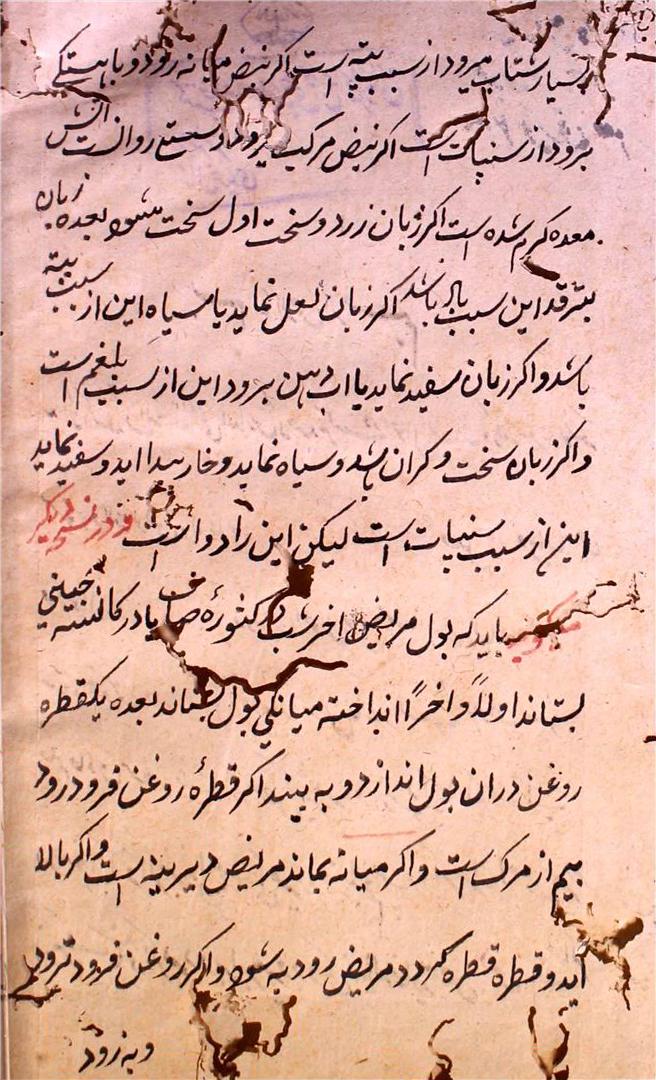 بسیار شتاب میرود از سبب پته است اکر نبض میانه رود و باهستکی
برود از سنپات است اکر نبض مرکب میرود روانست
معده کرم شده است اکر زبان زرد و سخت اول سخت شود بعده زبان
بترقد این سبب باد باشد اکر زبان لعل نماید یا سیاه این از سبب پته
باشد و اکر زبان سفید نماید یا اب دهن برود این از سبب بلغم است
و اکر زبان سخت و کران باشد و سیاه نماید و خار پیدا اید و سفید نماید
این از سبب سنپات است لیکن این را دوا است و در نسخه دیکر
باید که بول مریض اخر شب در کتوره صاف یا در کانسه چینی
بستاند اولاً و اخراً انداخته میانکی بول بستاند بعده یکقطره
روغن دران بول اندازد و به بیند اکر قطرهٔ روغن فرود رود
بیم از مرک است و اکر میانه بماند مریض دیرینه است و اکر بالا
اید و قطره قطره کردد مریض زود به شود و اکر روغن فرود نرود
و به زود